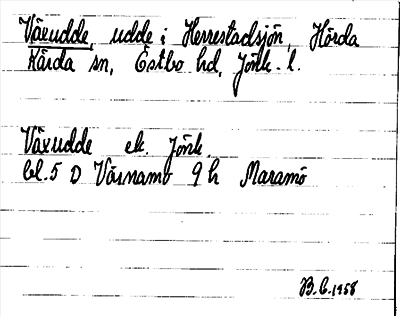 Växudde, udde i Herrestadsjön, Hörda
Kärda sn, Östbo hd, Jönk. l.
Växudde ek. Jönk.
bl. 5 D Värnamo 9 h Maramö
B.E. 1958